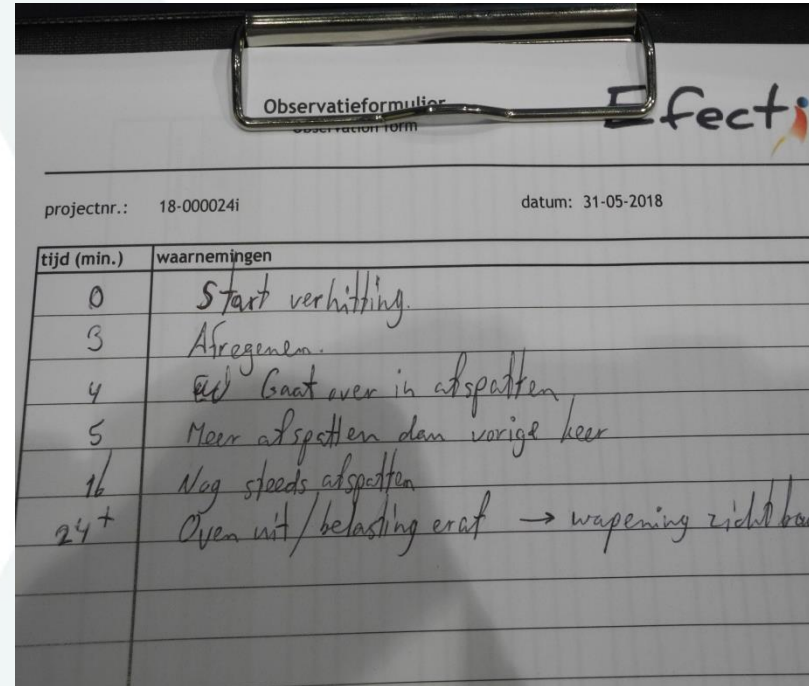 Observatieformulier
Observation form
Efecti
projectnr.: 18-000024i datum: 31-05-2018
tijd (min.) waarnemingen
0 Start verhitting.
3 Afregenen.
4 Gaat over in afspatten
5 Meer afspatten dan vorige keer
16 Nog steeds afspatten
24+ Oven uit/belasting eraf → wapening zichtbaa